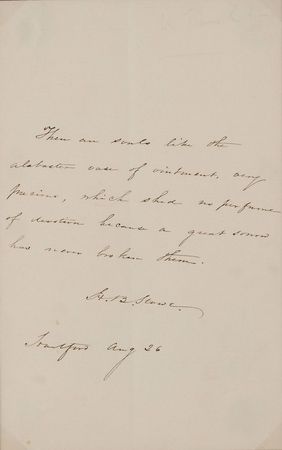 There are souls like the
alabaster vase of ointment, very
precious, which shed no perfume
of devotion because a great sorrow
has never broken them.
H. B. Stowe.
Hartford Aug 26